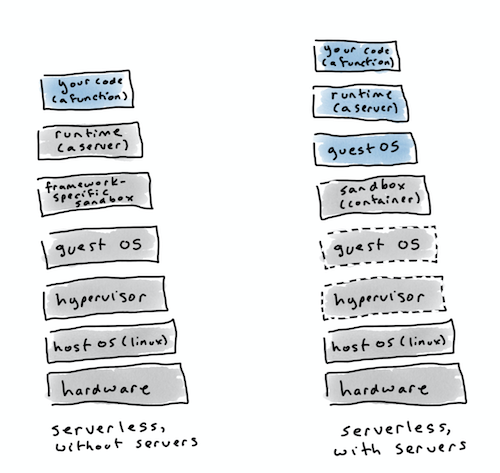 your code
(a function)
runtime
(a server)
framework-
specific
sandbox
guest OS
hypervisor
host OS (linux)
hardware
serverless,
without servers
your code
(a function)
runtime
(a server)
guest OS
sandbox
(container)
guest OS
hypervisor
host OS (linux)
hardware
serverless,
with servers